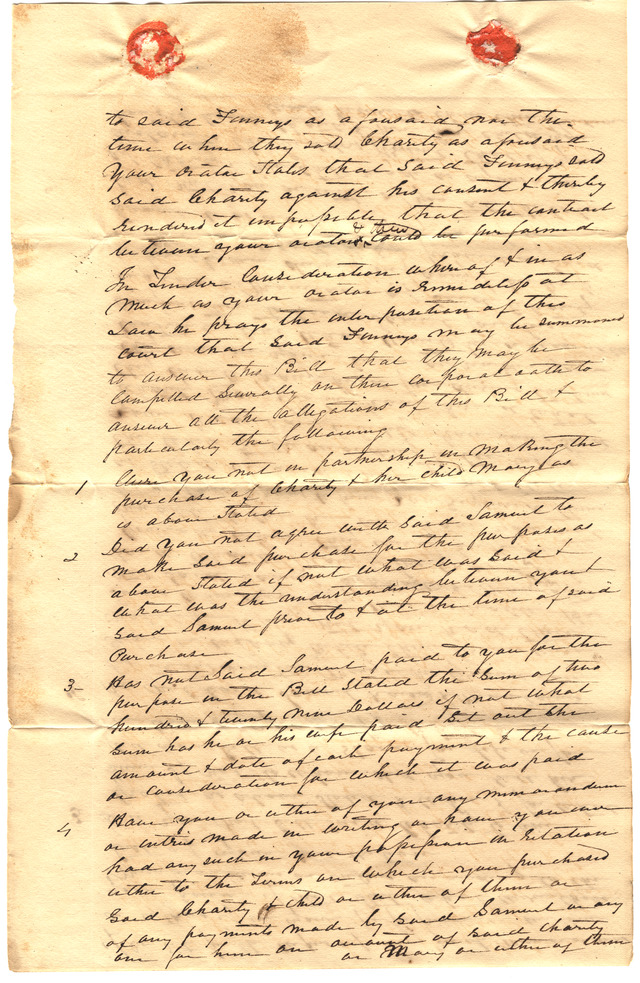 to said Finneys as aforesaid nor the
time when they sold Charity as aforesaid
Your orator States that Said Finneys sold
said Charity against his consent & thereby
rendered it impossible that the contract
between your orator & them could be performed
In Tender Consideration whereof & in as
much as your orator is remediless at
Law he prays the interposition of this
court that Said Finneys may be summoned
to answer this Bill that they may be
compelled Severally on their corporal oath to
answer all the allegations of this Bill &
particularly the following
1 Were you not in partnership in making the
purchase of Charity & her child Mary as
is above Stated
2 Did you not agree with Said Samuel to
make Said purchase for the purposes as
above Stated if not what was Said &
what was the understanding between you &
Said Samuel prior to & at the time of said
Purchase
3- Has not Said Samuel paid to you for the
purpose in the Bill Stated the Sum of two
hundred & twenty nine Dollars if not what
Sum has he or his wife paid Set out the
amount & date of each payment & the cause
or consideration for which it was paid
4 Have you or either of you any memorandum
or entries made in writing or have you ever
had any such in your possession in relation
either to the Terms on which you purchased
Said Charity & child or either of them or
of any payments made by said Samuel or any
one for him on account of said Charity
or Mary or either of them